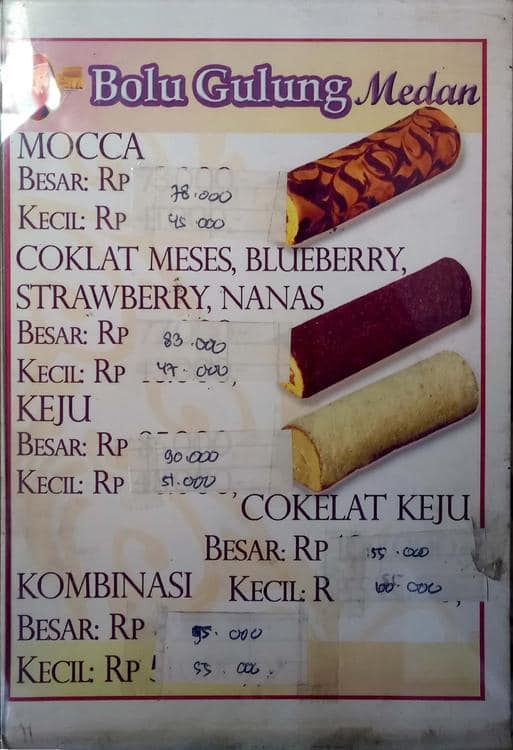 Bolu Gulung Medan
MOCCA
BESAR: RP 78.000
KECIL: RP 45.000
COKLAT MESES, BLUEBERRY,
STRAWBERRY, NANAS
BESAR: RP 83.000
KECIL: RP 47.000
KEJU
BESAR: RP 90.000
KECIL: RP 51.000
COKELAT KEJU
BESAR: RP 55.000
KECIL: R 60.000
KOMBINASI
BESAR: RP 95.000
KECIL: RP 55.000